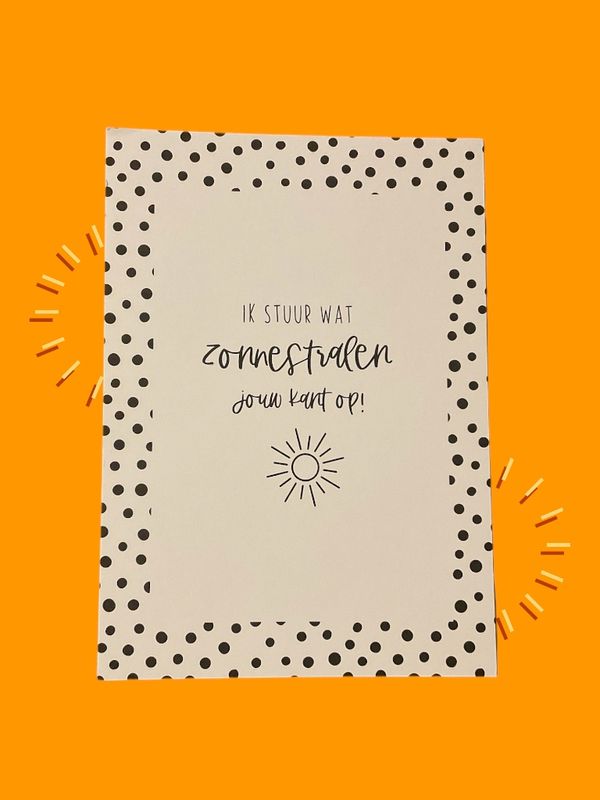 IK STUUR WAT
zonnestralen
jouw kant op!